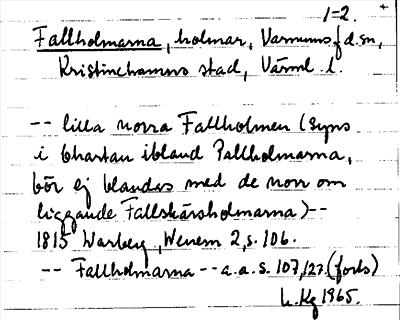 1=2.
Fallholmarna, holmar, Varnums f d. sn,
Kristinehamns stad, Värml. l.
-- lilla norra Fallholmen (syns
i Chartan ibland Pallholmarna,
bör ej blandas med de norr om
liggande Fallskärsholmarna) --
1815 Warberg, Wenern 2, s. 106.
-- Fallholmarna -- a.a. s. 107, 127. (forts)
L. Kg 1965.